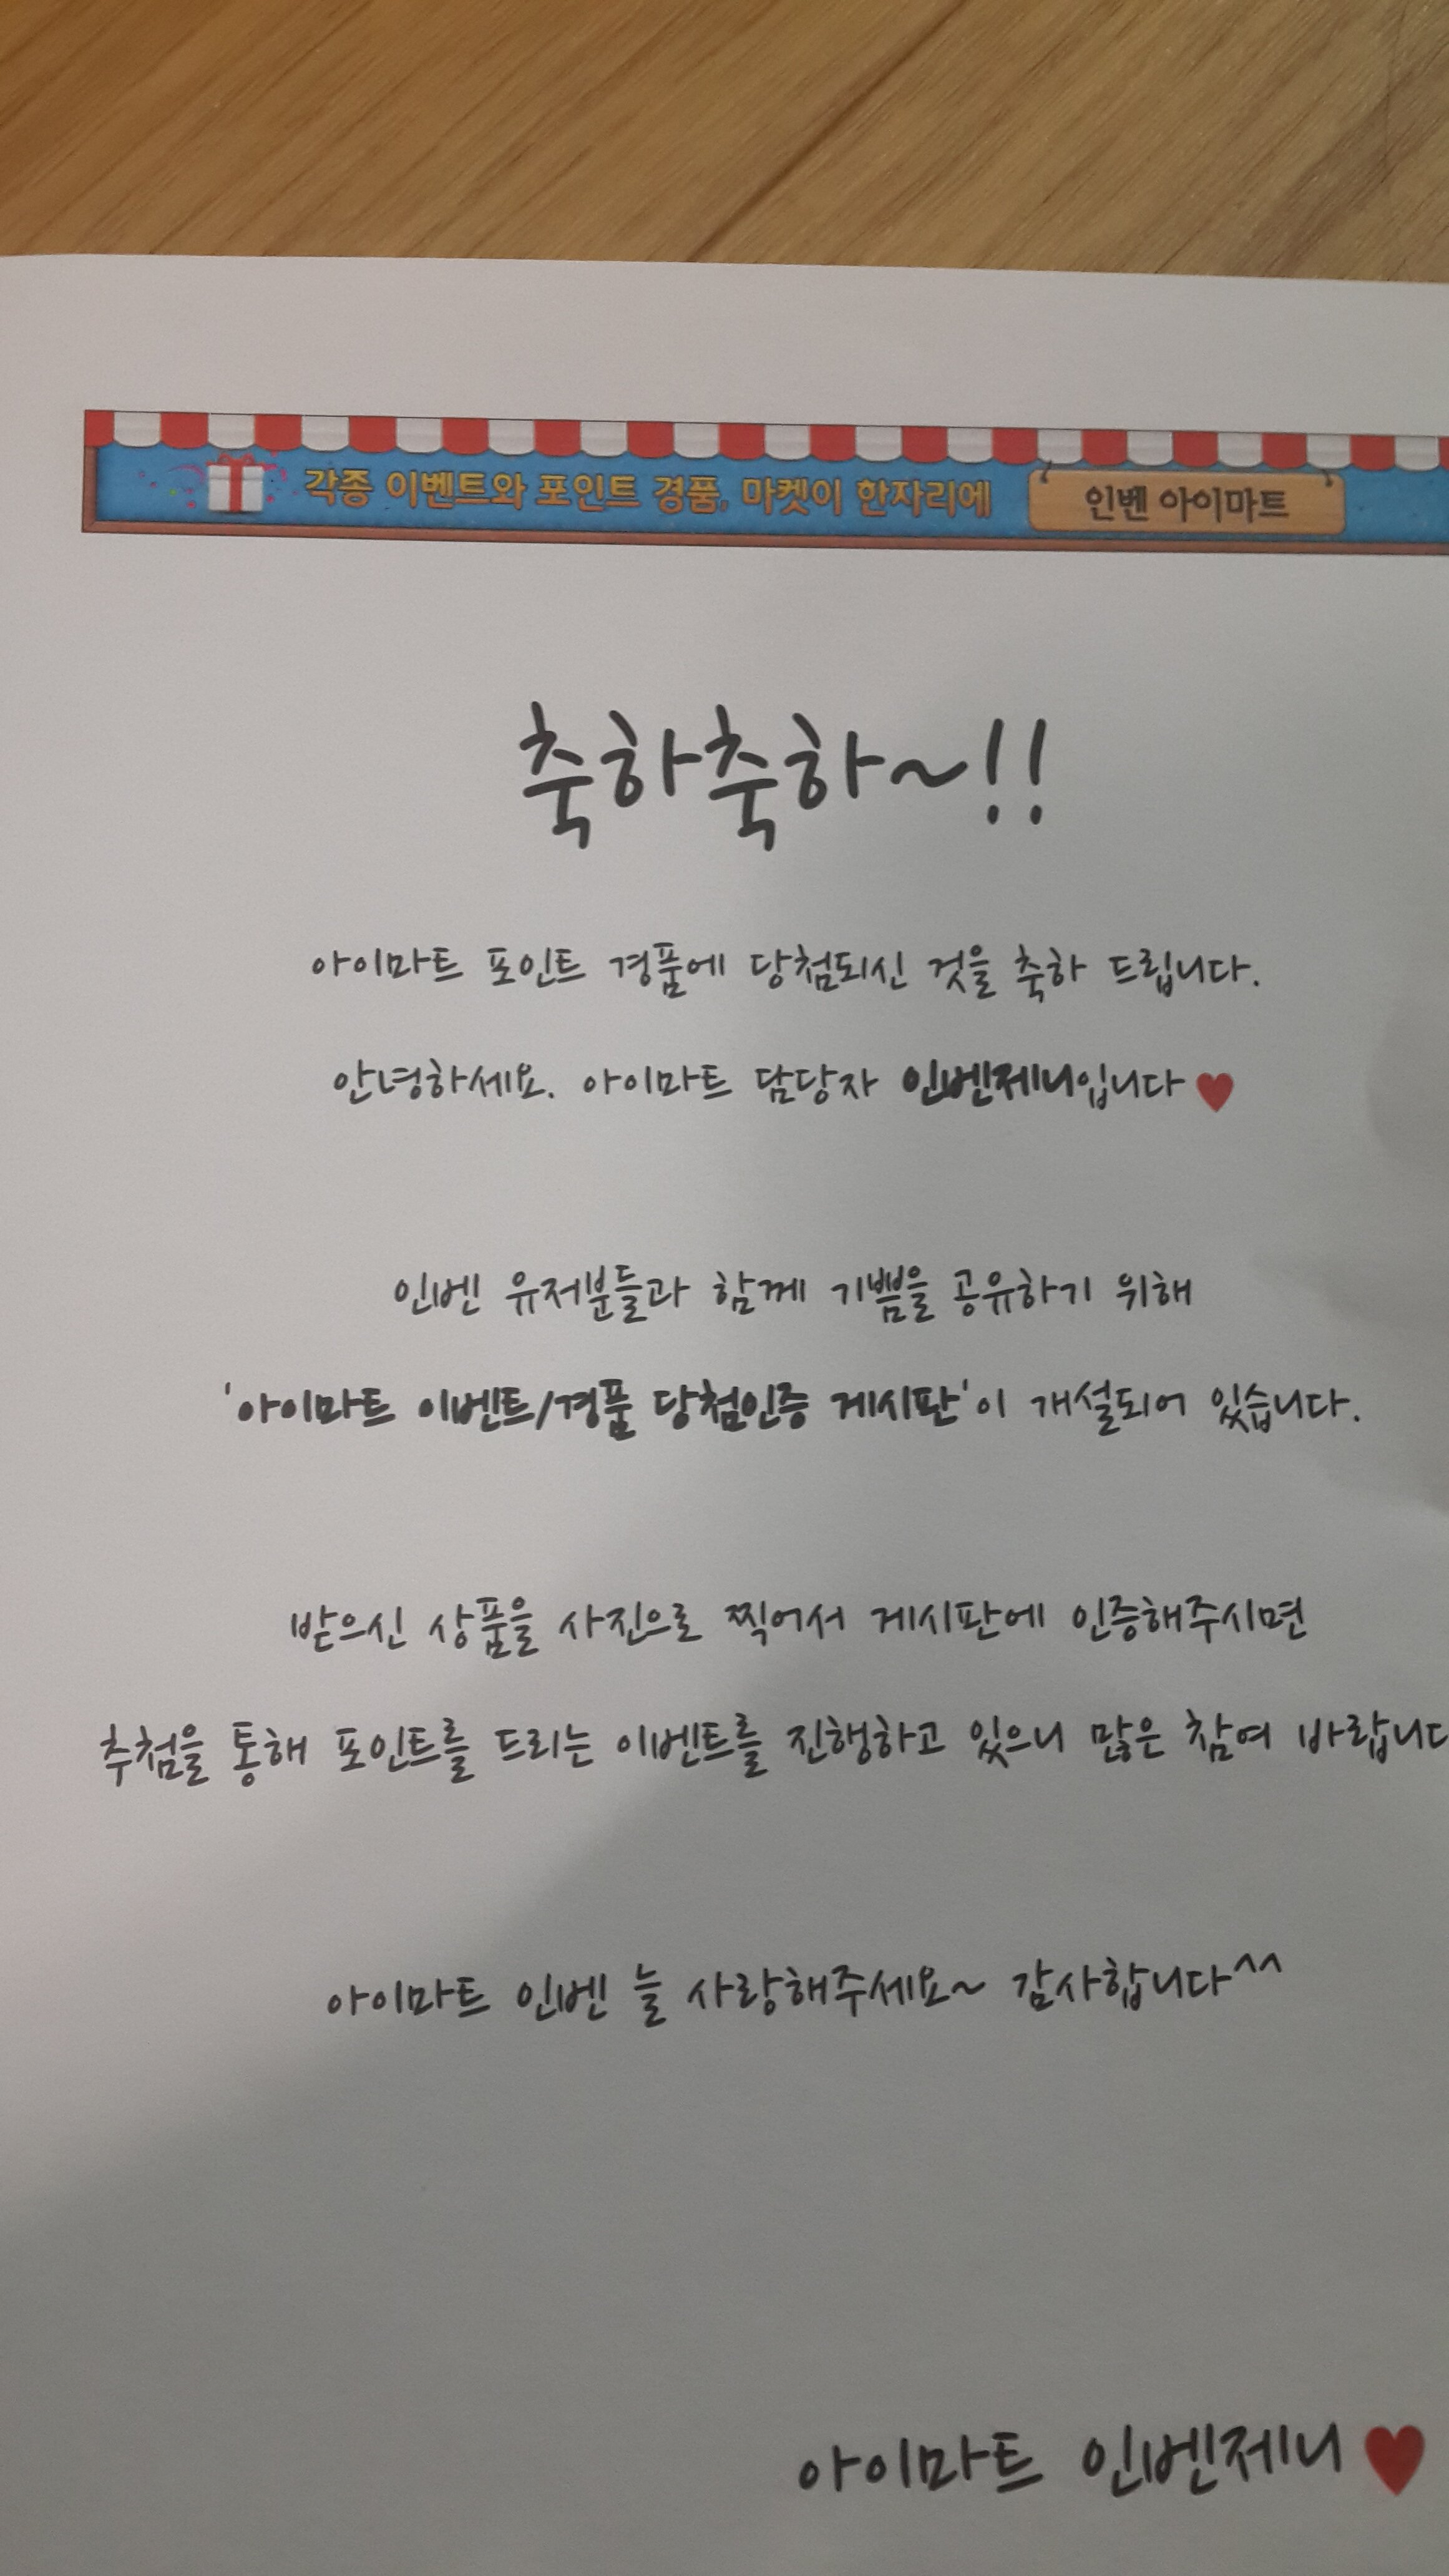 각종 이벤트와 포인트 경품, 마켓이 한자리에 인벤 아이마트
축하축하~!!
아이마트 포인트 경품에 당첨되신 것을 축하 드립니다.
안녕하세요. 아이마트 담당자 인벤제니입니다♥
인벤 유저분들과 함께 기쁨을 공유하기 위해
'아이마트 이벤트/경품 당첨인증 게시판'이 개설되어 있습니다.
받으신 상품을 사진으로 찍어서 게시판에 인증해주시면
추첨을 통해 포인트를 드리는 이벤트를 진행하고 있으니 많은 참여 바랍니다
아이마트 인벤 늘 사랑해주세요~ 감사합니다^^
아이마트 인벤제니♥